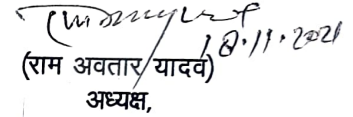 18.11.2021
(राम अवतार यादव)
अध्यक्ष,